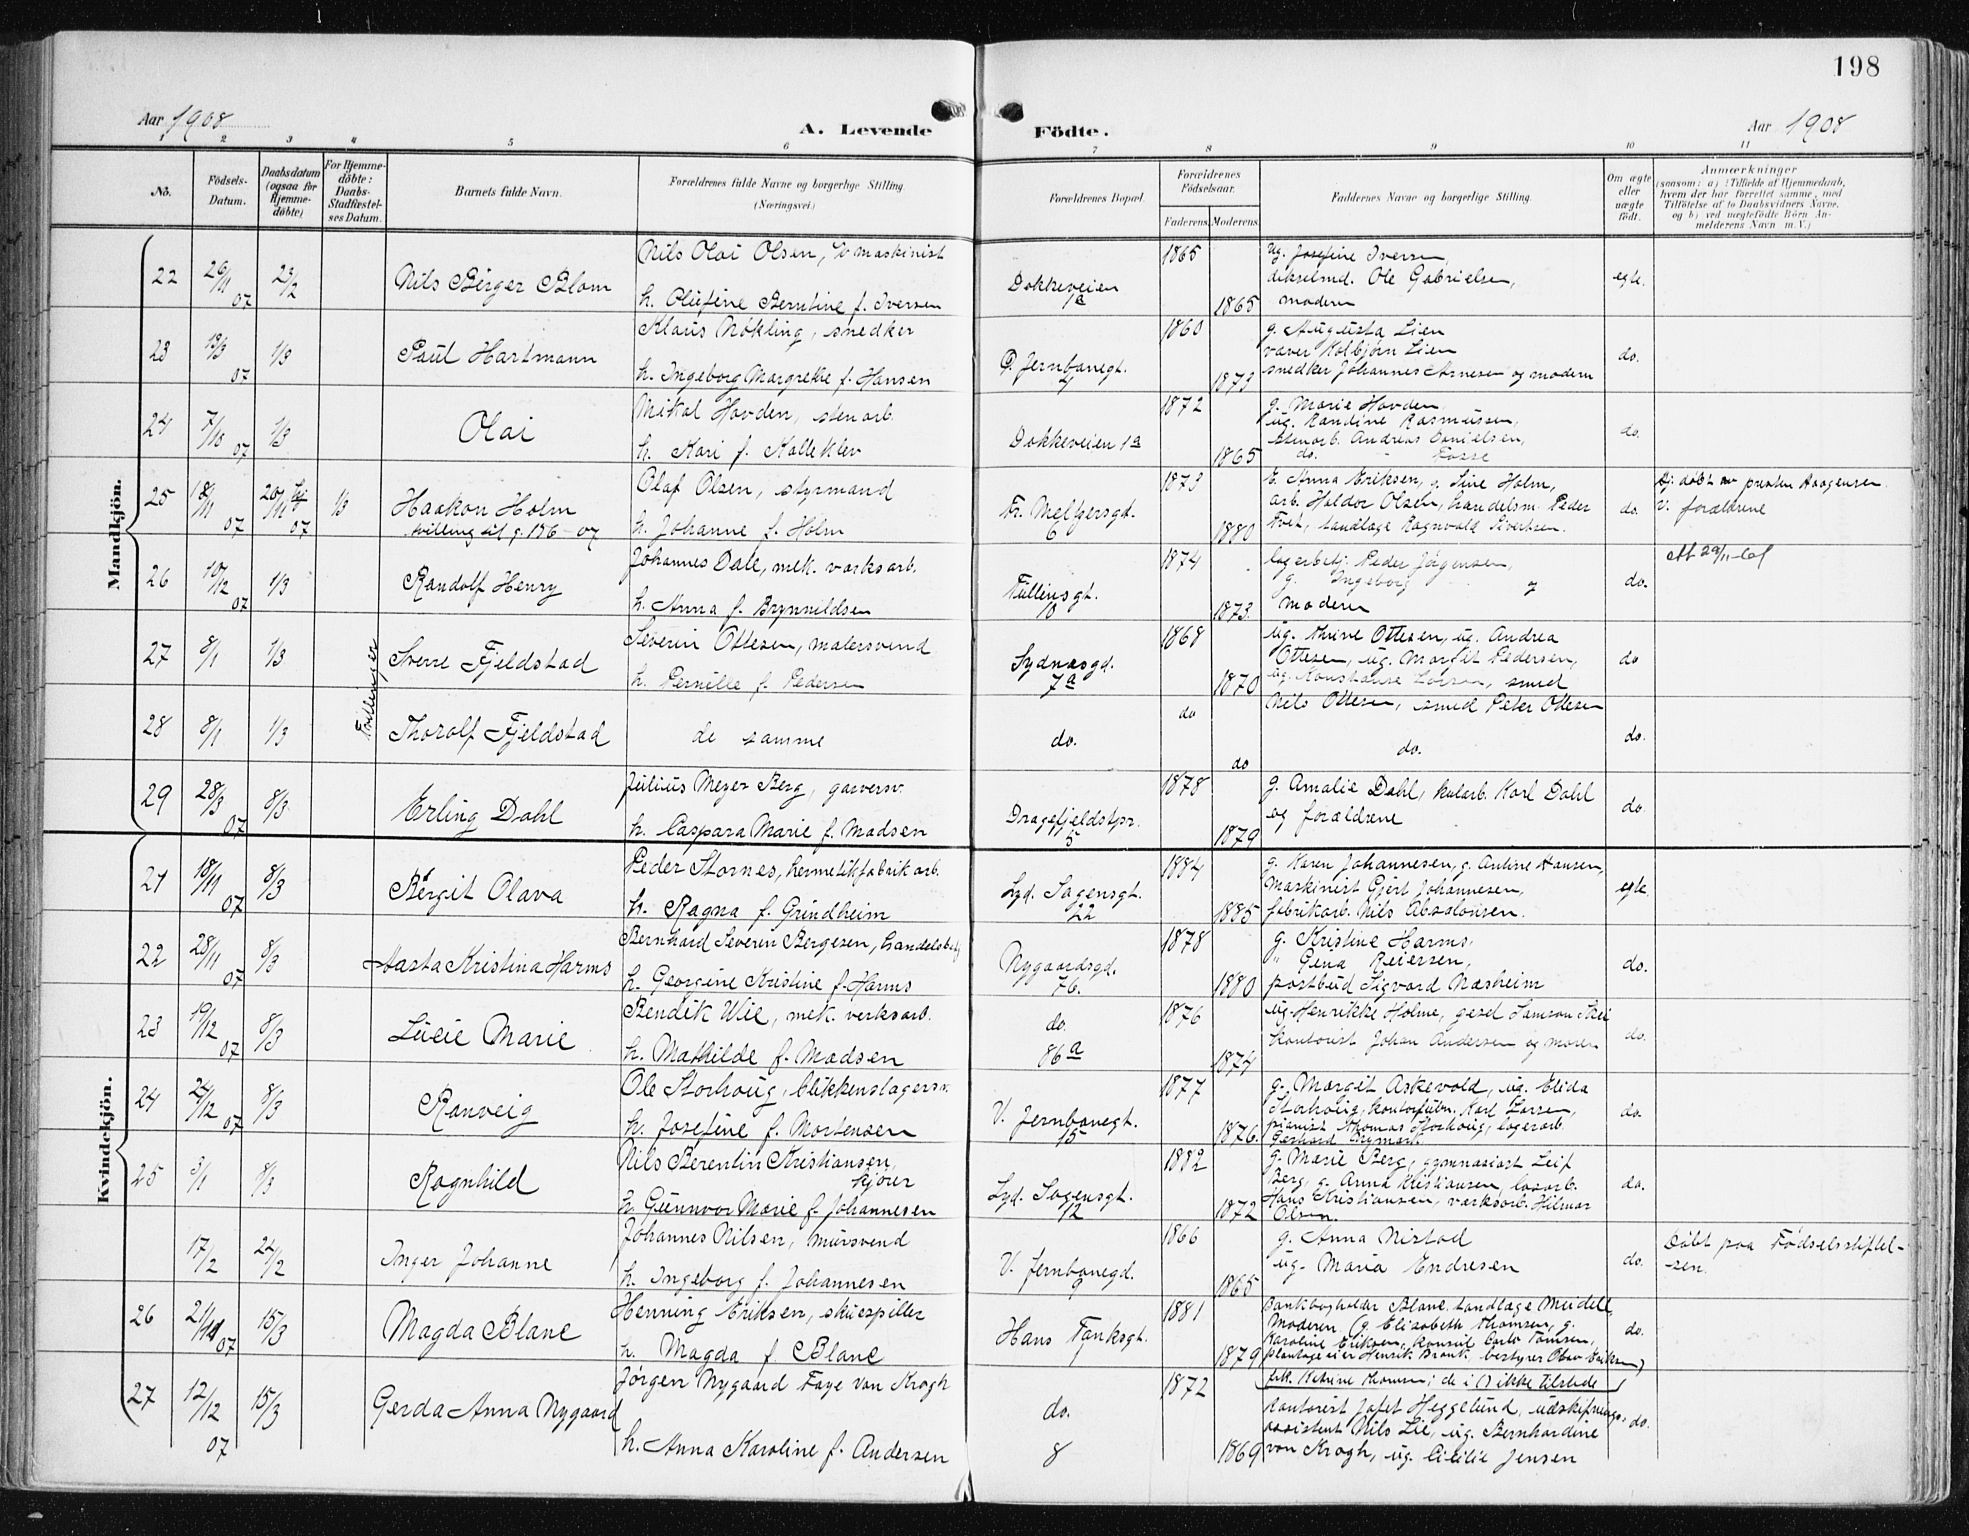 198
Aar 1908
A. Levende
Födte.
Aar 1908
1 2 3 4 5 6 7 8 9 10 11
No.
Födsels-
Datum.
Daabsdatum
(ogsaa for
Hjemme-
döbte)
For Hjemme-
döbte:
Daabs-
Stadfæstel-
ses Datum.
Barnets fulde Navn.
Forældrenes fulde Navne og borgerlige Stilling.
(Næringsvei.)
Forældrenes Bopæl.
Forældrenes
Födselsaar.
Faderens Moderens
Faddernes Navne og borgerlige Stilling.
Om ægte
eller
uægte
födt.
Anmærkninger
(saasom: a) i Tilfælde af Hjemmedaab,
hvem der har forrettet samme, med
Tilföielse af to Daabsvidners Navne,
og b) ved uægtefödte Börn An-
melderens Navn m. V.)
Mandkjön.
22 26/11 07 23/2 Nils Birger Blom
Nils Olai Olsen, maskinist
h. Olufine Berntine f. Iversen
Dokkeveien
1a
1865 1865
ug. Josefine Iversen,
Ole Gabrielsen,
modern
egte.
23 13/3 07 1/3 Paul Hartmann
Klaus Nökling, snedker
h. Ingeborg Margrethe f. Hansen
Ö. Jernbanegt.
4
1860 1873
g. Augusta Lien
væver Kolbjörn Lien
snedker Johannes Arnesen og modern
do.
24 7/10 07 1/3 Olai
Mikal Hovden, stenarb.
h. Kari f. Kalleklev
Dokkeveien 1a
1872 1865
g. Marie Hovden,
ug. Randine Rasmussen,
stenarb. Andreas Danielsen,
do. Fosse
do.
25 18/11 07 20/11 hj 07 1/3 Haakon Holm
tvilling til g. 176-07
Olaf Olsen, styrmand
h. Johanne f. Holm
Fr. Meltzersgd.
6
1873 1880
E. Anna Eriksen, g. Sine Holm,
arb. Haldor Olsen, handelsm. Peder
Tveit, tandlæge Ragnvald Sivertsen.
do.
Hj. döbt av presten Haagensen
V. forældrene
26 10/12 07 1/3 Randolf Henry
Johannes Dale, mek. værksarb.
h. Anna f. Brynnildsen
Tullinsgt.
10
1874 1873.
lagerbetj. Peder Jörgensen,
g. Ingeborg
modern
do.
27 8/1 1/3 Sverre Fjeldstad
Tvillinger
Severin Ottesen, malersvend
h. Pernille f. Pedersen
Sydnæsgd.
7a
1868 1870
ug. Thrine Ottesen, ug. Andrea
Ottesen, ug. Margit Pedersen,
ug. Konstanse Larsen, smed
Nils Ottesen, smed Peter Ottesen
do
28 8/1 1/3 Thorolf Fjeldstad
de samme
do.
do do
do.
do.
29 28/3 07 8/3 Erling Dahl
Julius Meyer Berg, garversv.
h. Caspara Marie f. Madsen
Dragefjeldstpr.
5
1878 1879
g. Amalie Dahl, kularb. Karl Dahl
og forældrene
do.
Kvindekjön.
21 18/11 07 8/3 Bergit Olava
Peder Stornes, hermetikfabrikarb.
h. Ragna f. Grindheim
Lyd. Sagensgt.
22
1884 1885
g. Karen Johannesen, g. Antine Hansen,
Maskinist Gjert Johannesen,
fabrikarb. Nils Absalonsen.
egte.
22 28/11 07 8/3 Aasta Kristina Harms
Bernhard Severin Bergesen, handelsbetj
h. Georgine Kristine f. Harms
Nygaardsgd.
76.
1878 1880
g. Kristine Harms,
" Gena Reiersen,
postbud Sigvard Næsheim
do.
23 19/12 07 8/3 Lucie Marie
Bendik Wie, mek. verksarb.
h. Mathilde f. Madsen
do.
86a
1876 1874
ug. Henrikke Holme, gesel Samson Skei
kontorist Johan Andersen og moren
do.
24 24/12 07 8/3 Ranveig
Ole Storhoug, blikkenslagersv.
h. Josefine f. Mortensen
V. Jernbanegt.
15
1877 1876.
g. Margit Askevold, ug. Elida
Storhoug, kontorfuldm. Karl Larsen,
pianist Thomas Storhoug, lagerarb.
Gerhard Rymark
do.
25 3/1 8/3 Ragnhild
Nils Berentin Kristiansen,
kjörer
h. Gunnvor Marie f. Johannesen
Lyd. Sagensgt.
12
1882 1872
g. Marie Berg, gymnasiast Leif
Berg, g. Anna Kristiansen,
Hans Kristiansen, værksarb. Hilmar
Olsen.
do.
17/2 24/2 Inger Johanne
Johannes Nilsen, mursvend
h. Ingeborg f. Johannesen
V. Jernbanegd.
9
1866 1865
g. Anna Nistad
ug. Maria Endresen
do.
Döbt paa Födselsstiftel-
sen.
26 21/11 07 15/3 Magda Blanc
Henning Eriksen, skuespiller
h. Magda f. Blanc
Hans Tanksgt.
1
1881 1879
bankbogholder Blanc, tandlæge Meidell,
Moderen (g. Elisabeth Thomsen, g.
Karoline Eriksen, konsul Carlo Tomsen,
plantageeier Henrik Brank, bestyrer Olav Eriksen,
frk. Katrine Thomsen; de i () ikke tilstede
do.
27 12/12 07 15/3 Gerda Anna Nygaard
Jörgen Nygaard Faye von Krogh
h. Anna Karoline f. Andersen
do.
8
1872 1869
kontorist Jafet Heggelund, udskiftnings-
assistent Nils Lie, ug. Bernhardine
von Krogh, ug. Cicilie Jensen
do.